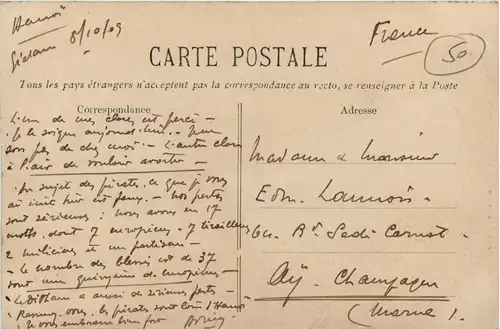 Hanoï
8/10/09
France
50
CARTE POSTALE
Tous les pays étrangers n'acceptent pas la correspondance au recto, se renseigner à la Poste
Correspondance
Adresse
L'un de mes clous est percé -
Je le soigne aujourd'hui. -
pas de chez moi. - L'autre clou
à l'air de vouloir avorter -
Au sujet des pirates, ce que je vous
ai écrit hier est faux. - nos pertes
sont sérieuses : nous avons eu 17
morts, dont 7 européens. 7 tirailleurs
2 miliciens et un partisan -
le nombre des blessés est de 37
dont une quinzaine d'européens -
Le Détham a aussi de sérieuses pertes -
Rassurez-vous, les pirates sont loin d'Hanoï
Je vous embrasse bien fort
Madame & Monsieur
Edm. Lannois
64. Bd Sadi Carnot -
Aÿ - Champagne
(Marne).